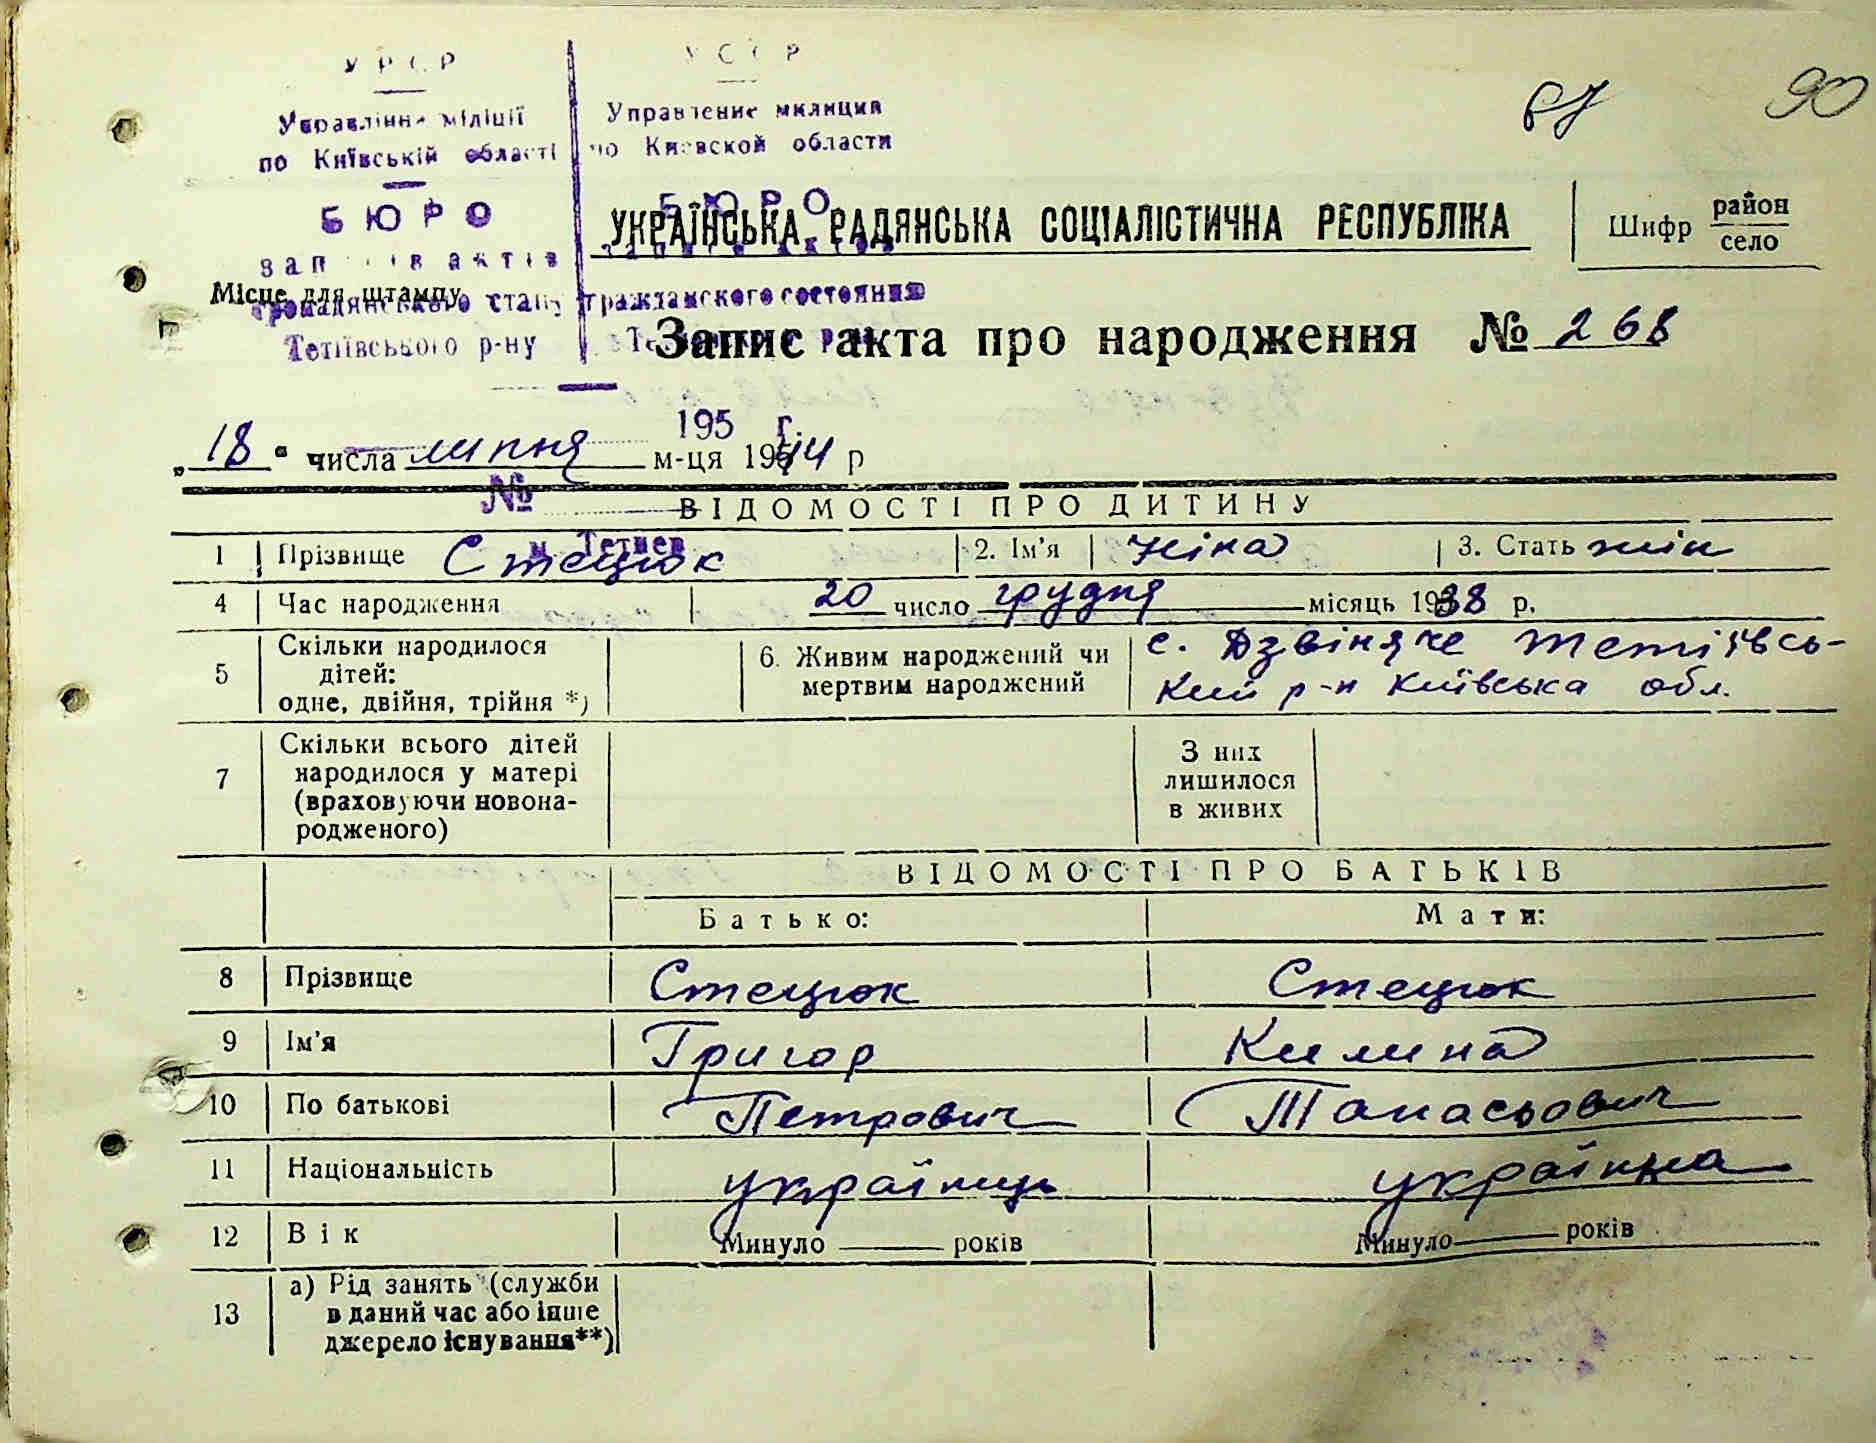 УРСР
УССР
Управління міліції
Управление милиции
по Київській області
по Киевской области
67
90
БЮРО
БЮРО
УКРАЇНСЬКА РАДЯНСЬКА СОЦІАЛІСТИЧНА РЕСПУБЛІКА
Шифр район
село
записів актів
Місце для штампу
громадянського стану
гражданского состояния
Тетіївського р-ну
Запис акта про народження № 268
195 г.
„18" числа липня м-ця 1954 р
№
ВІДОМОСТІ ПРО ДИТИНУ
м. Тетиев
1 Прізвище Стецюк 2. Ім'я Ніна 3. Стать жін
4 Час народження 20 число грудня місяць 1938 р.
5 Скільки народилося дітей: одне, двійня, трійня *)
6. Живим народжений чи мертвим народжений
с. Дзвіняче Тетіївсь-
кий р-н Київська обл.
7 Скільки всього дітей народилося у матері (враховуючи новона-родженого)
З них лишилося в живих
ВІДОМОСТІ ПРО БАТЬКІВ
Батько: Мати:
8 Прізвище Стецюк Стецюк
9 Ім'я Григор Килина
10 По батькові Петрович Танасьович
11 Національність українець українка
12 Вік Минуло років Минуло років
13 а) Рід занять (служби
в даний час або інше
джерело існування**)